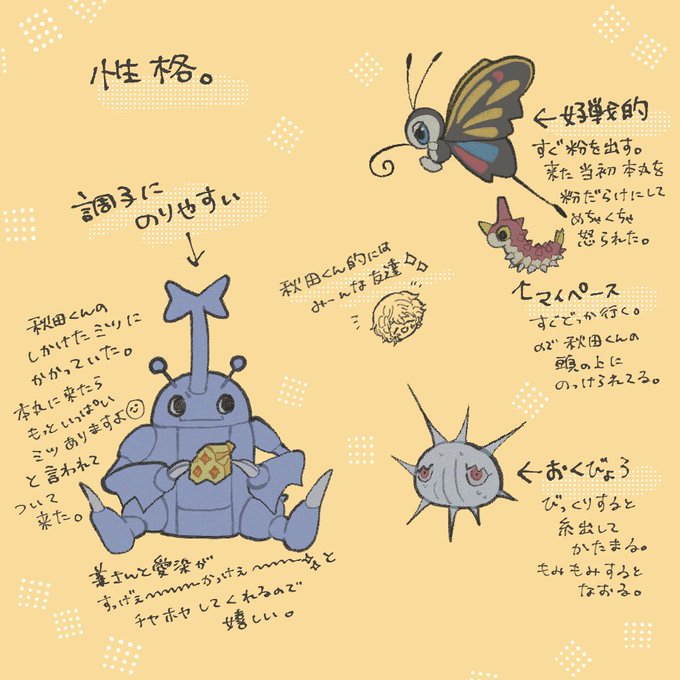 性格。
←好戦的
すぐ粉を出す。
来た当初本丸を
粉だらけにして
めちゃくちゃ
怒られた。
調子に
のりやすい
秋田くん的には
みーんな友達
↑マイペース
すぐどっか行く。
ので秋田くんの
頭の上に
のっけられてる。
秋田くんの
しかけたミツに
かかっていた。
本丸に来たら
もっといっぱい
ミツありますよ
と言われて
ついて
来た。
←おくびょう
びっくりすると
糸出して
かたまる。
もみもみすると
なおる。
さんと愛染が
すっげぇ〜〜かっけぇ〜〜と
チヤホヤしてくれるので
嬉しい。